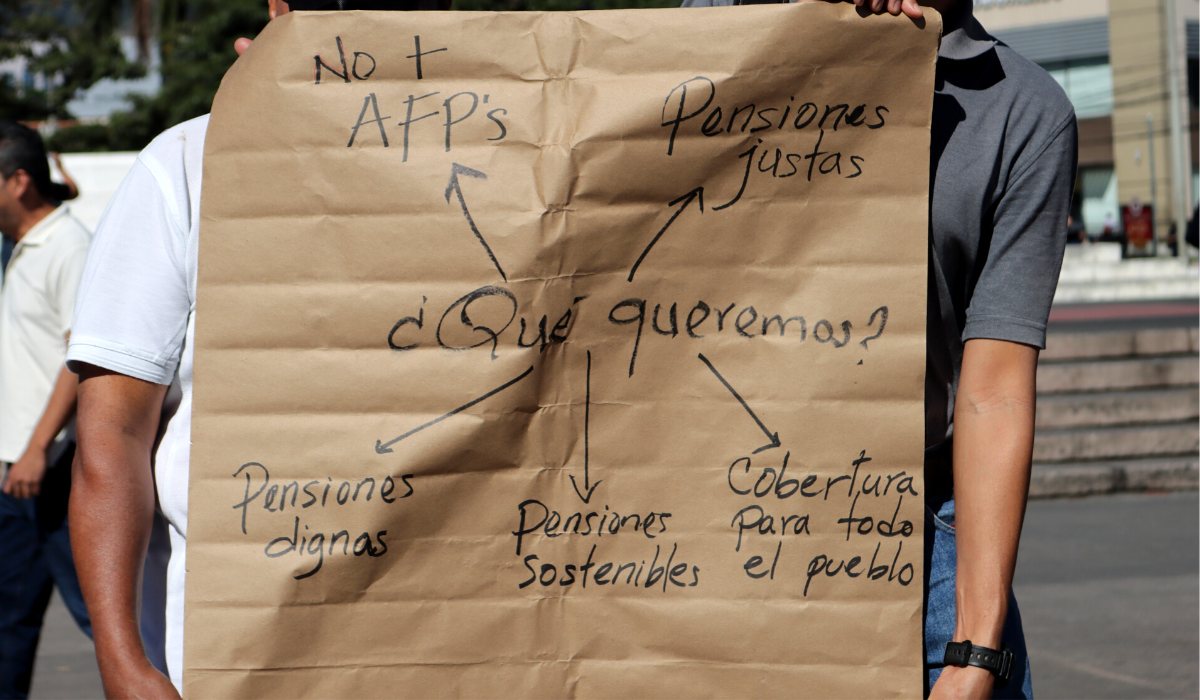 No +
AFP's
Pensiones
justas
¿Qué queremos?
Pensiones
dignas
Pensiones
sostenibles
Cobertura
para todo
el pueblo